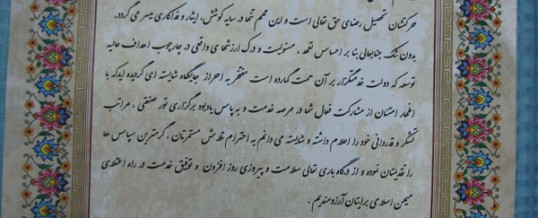 هر کنشتان تحصیل رضای حق تعالی است و این مهم تنها در سایه کوشش، ایثار و فداکاری میسر می گردد.
بدون شک جنابعالی بنا بر احساس تعهد، مسئولیت و درک ارزشهای واقعی در چارچوب اهداف عالیه
توسعه که دولت خدمتگزار بر آن همت گمارده است مفتخر به احراز جایگاه شایسته ای گردیده اید که با
اظهار امتنان از مشارکت فعال شما در عرصه خدمت و به پاس یادبود برگزاری تور صنعتی، مراتب
تشکر و قدردانی خود را اعلام داشته و شایسته می دانم به احترام تلاش مستمرتان، گرمترین سپاس ها
را تقدیمتان نموده و از درگاه باری تعالی سلامت و پیروزی روز افزون و توفیق خدمت در راه اعتلای
میهن اسلامی برایتان آرزومندیم.